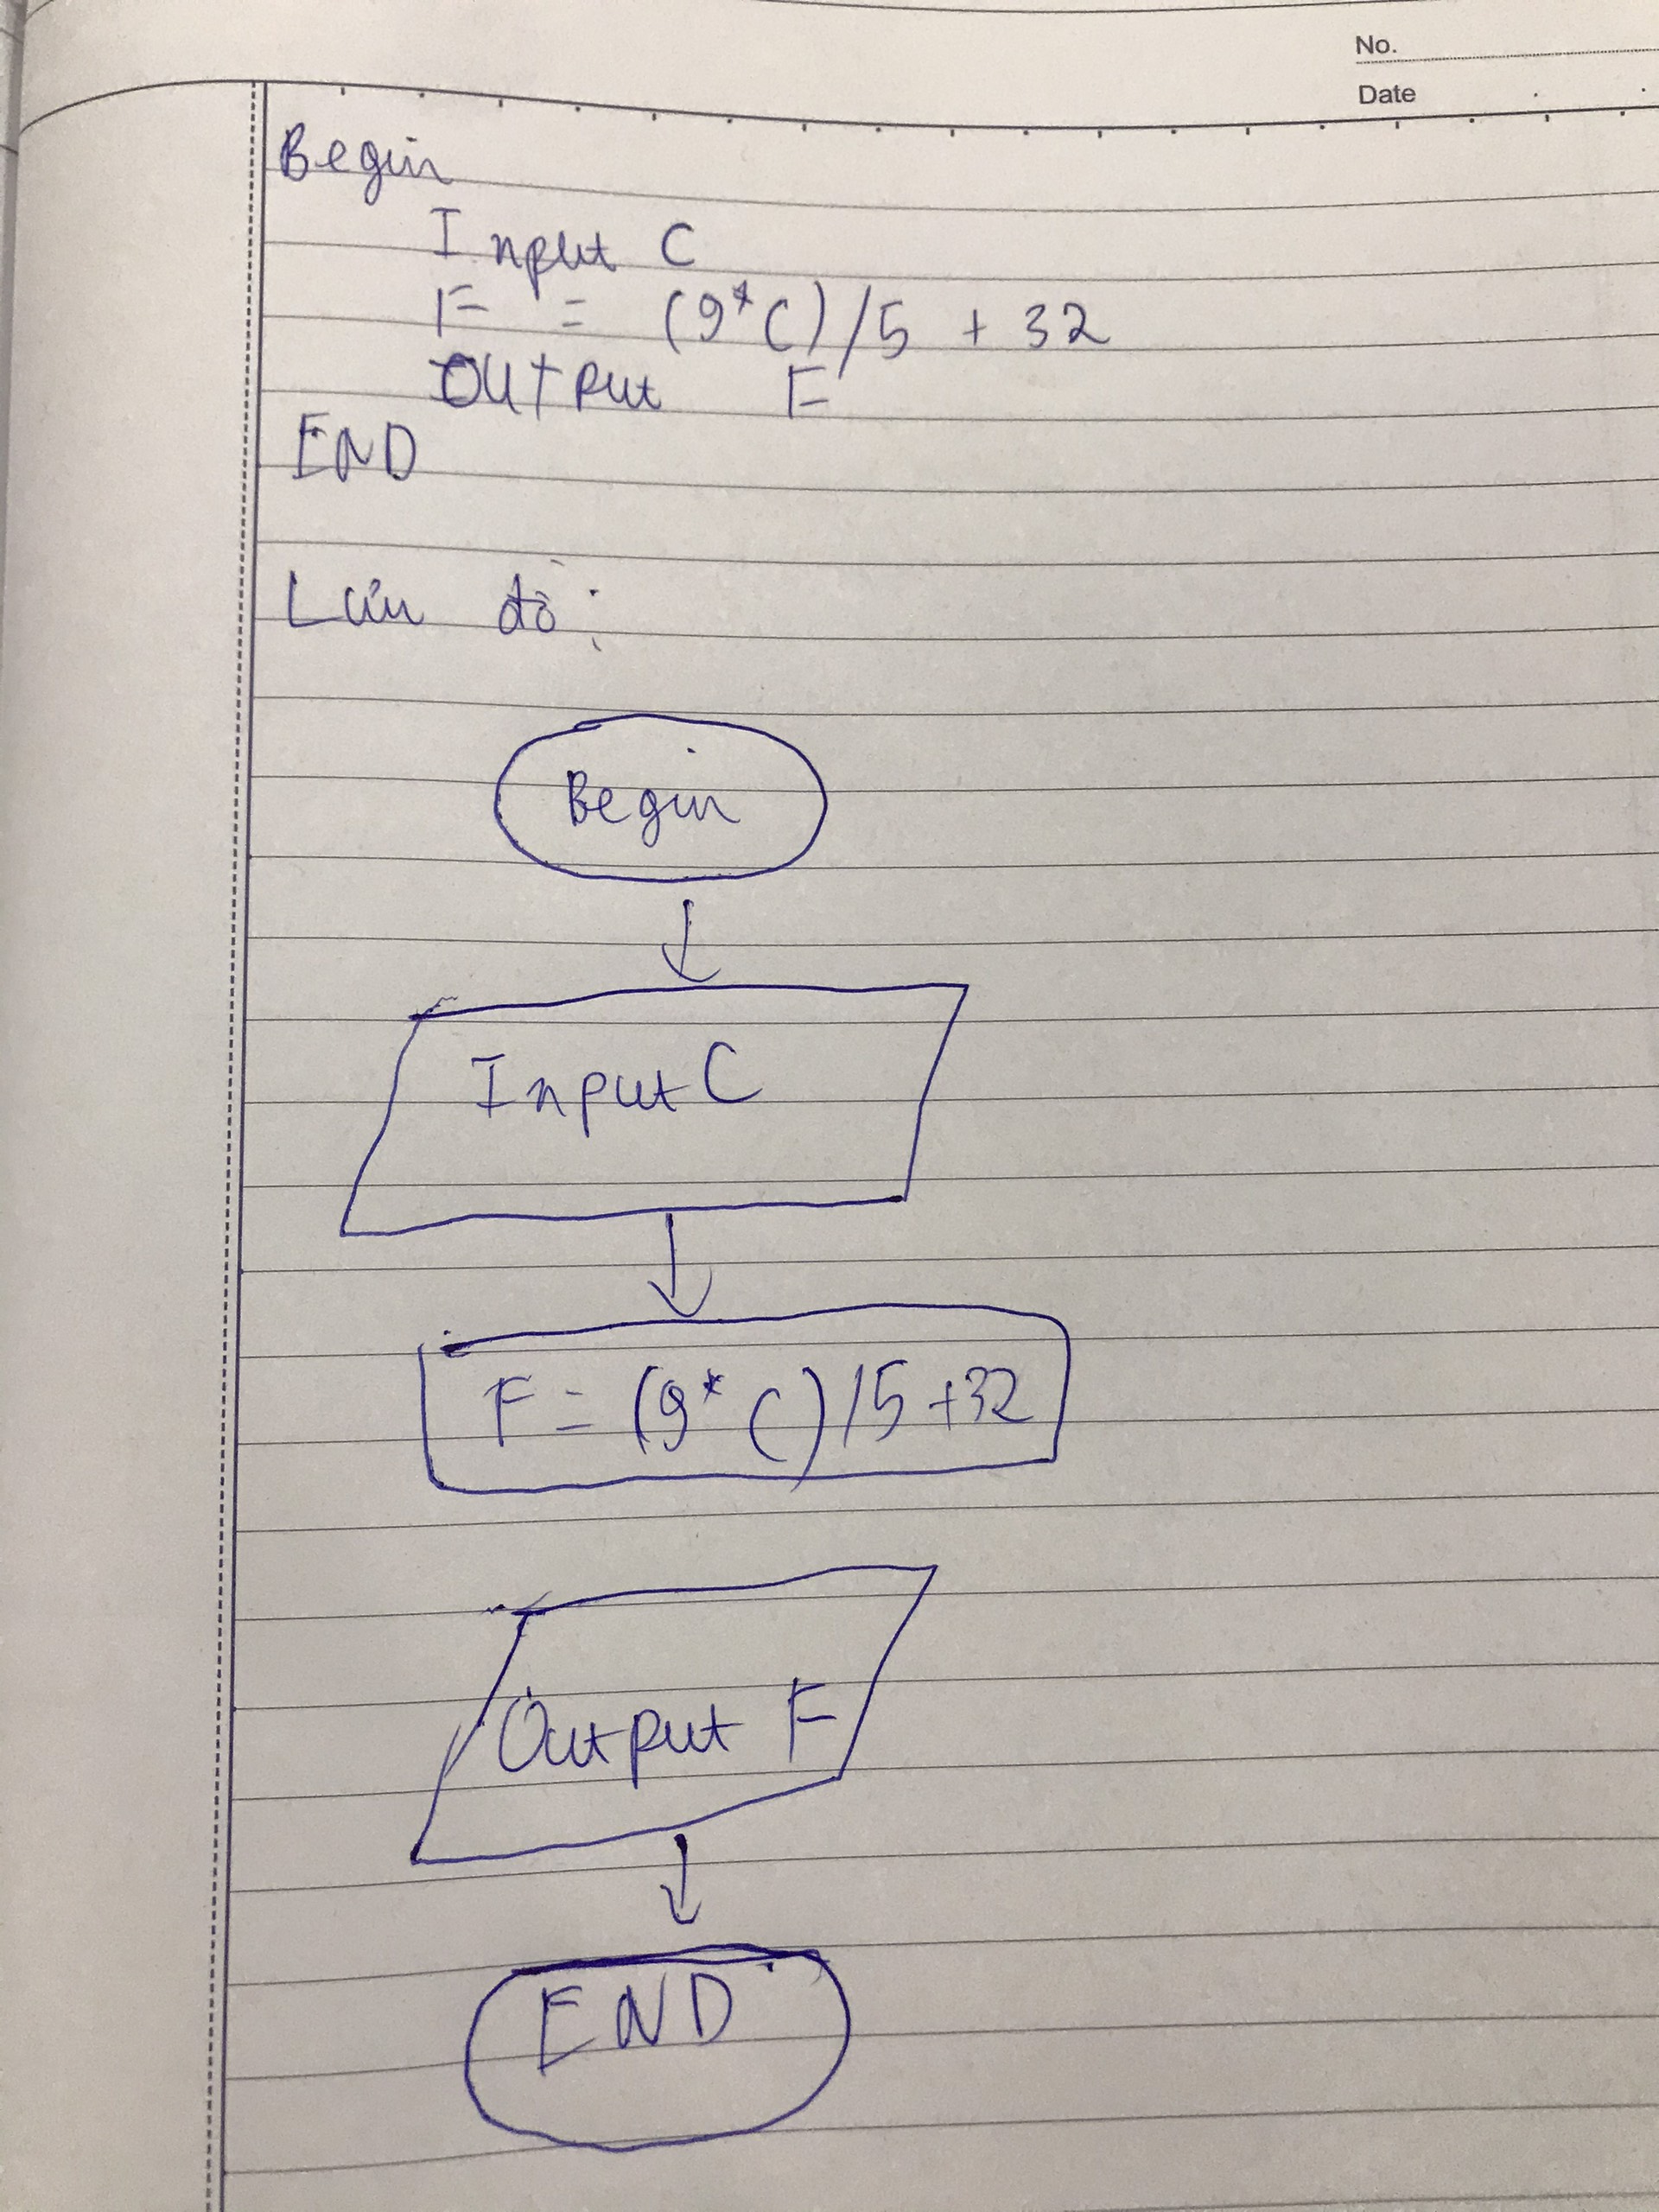 No.
Date
Begin
Input C
F = (9*C)/5 + 32
Output F
END
Lưu đồ:
Begin
Input C
F = (9*C)/5+32
Output F
END